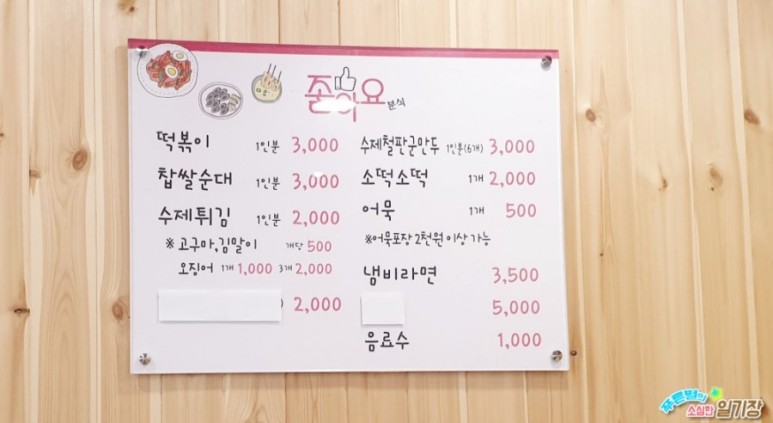 좋아요 분식
떡볶이 1인분 3,000
찹쌀순대 1인분 3,000
수제튀김 1인분 2,000
※고구마,김말이 개당 500
오징어 1개 1,000 3개 2,000
) 2,000
수제철판군만두 1인분(6개) 3,000
소떡소떡 1개 2,000
어묵 1개 500
※어묵포장 2천원 이상 가능
냄비라면 3,500
5,000
음료수 1,000
푸른별의
소심한 일기장